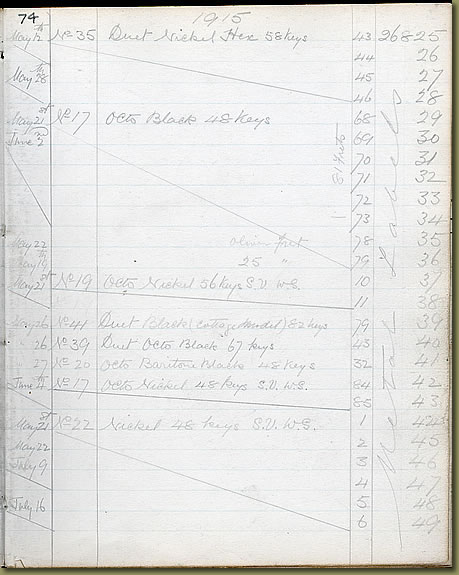 74 1915
May 12th No 35 Duet Nickel Hex 58 Keys 43 26825
44 26
May 28th 45 27
46 28
May 21st No 17 Octo Black 48 Keys 68 29
June 2nd 69 30
70 31
71 32
72 33
73 34
May 22 Fret 78 35
25 " 79 36
May 21st No 19 Octo Nickel 56 Keys S.V. W.S. 10 37
11 38
26 No 41 Duet Black (Cottage Model) 82 Keys 79 39
26 No 39 Duet Octo Black 67 Keys 43 40
27 No 20 Octo Baritone Black 48 Keys 32 41
June No 17 Octo Nickel 48 Keys S.V. W.S. 84 42
85 43
May 21st No 22 Nickel 48 Keys S.V. W.S. 1 44
May 22 2 45
July 9 3 46
4 47
July 16 5 48
6 49
81 Frets
Metal Labels